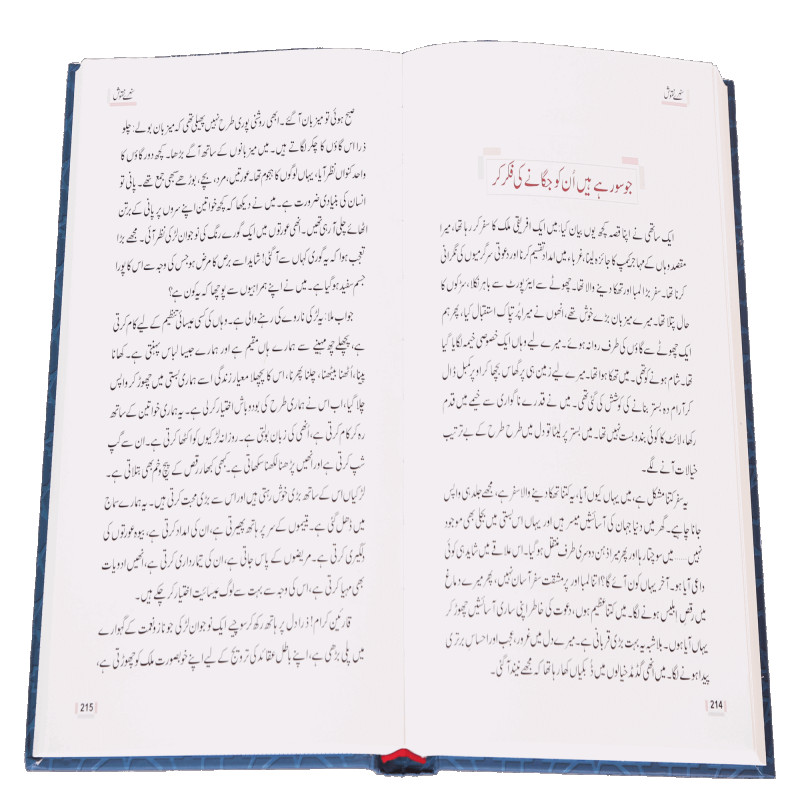 سنہرے نقوش
جو سو رہے ہیں اُن کو جگانے کی فکر کر
ایک ساتھی نے اپنا قصہ کچھ یوں بیان کیا، میں ایک افریقی ملک کا سفر کر رہا تھا، میرا
مقصد وہاں کے مہاجر کیمپ کا جائزہ لینا، غرباء میں امداد تقسیم کرنا اور دعوتی سرگرمیوں کی نگرانی
کرنا تھا۔ سفر بڑا لمبا اور تھکا دینے والا تھا۔ چھوٹے سے ایئرپورٹ سے باہر نکلا، سڑکوں کا
حال پتلا تھا۔ میرے میزبان بڑے خوش تھے، انھوں نے میرا پُرتپاک استقبال کیا، پھر ہم
ایک چھوٹے سے گاؤں کی طرف روانہ ہوئے۔ میرے لیے وہاں ایک خصوصی خیمہ لگایا گیا
تھا۔ شام ہونے کو تھی۔ میں تھکا ہوا تھا۔ میرے لیے زمین ہی پر گھاس بچھا کر اوپر کمبل ڈال
کر آرام دہ بستر بنانے کی کوشش کی گئی تھی۔ میں نے قدرے ناگواری سے خیمے میں قدم
رکھا، لائٹ کا کوئی بندوبست نہیں تھا۔ میں بستر پر لیٹا تو دل میں طرح طرح کے بے ترتیب
خیالات آنے لگے۔
یہ سفر کتنا مشکل ہے، میں یہاں کیوں آیا، یہ کتنا تھکا دینے والا سفر ہے، مجھے جلد ہی واپس
جانا چاہیے۔ گھر میں دنیا جہان کی آسائشیں میسر ہیں اور یہاں اس بستی میں بجلی بھی موجود
نہیں...... میں سوچتا رہا اور پھر میرا ذہن دوسری طرف منتقل ہو گیا۔ اس علاقے میں شاید ہی کوئی
داعی آیا ہو۔ آخر یہاں کون آئے گا؟ اتنا لمبا اور پر مشقت سفر آسان نہیں، پھر میرے دماغ
میں رقص ابلیس ہونے لگا۔ میں کتنا عظیم ہوں، دعوت کی خاطر اپنی ساری آسائشیں چھوڑ کر
یہاں آیا ہوں۔ بلاشبہ یہ بہت بڑی قربانی ہے۔ میرے دل میں غرور، عُجب اور احساس برتری
پیدا ہونے لگا۔ میں انھی گڈمڈ خیالوں میں ڈبکیاں کھا رہا تھا کہ مجھے نیند آ گئی۔
214
سنہرے نقوش
صبح ہوئی تو میزبان آ گئے۔ ابھی روشنی پوری طرح نہیں پھیلی تھی کہ میزبان بولے: چلو
ذرا اس گاؤں کا چکر لگاتے ہیں۔ میں میزبانوں کے ساتھ آگے بڑھا۔ کچھ دور گاؤں کا
واحد کنواں نظر آیا، یہاں لوگوں کا ہجوم تھا۔ عورتیں، مرد، بچے، بوڑھے سبھی جمع تھے۔ پانی تو
انسان کی بنیادی ضرورت ہے۔ میں نے دیکھا کہ کچھ خواتین اپنے سروں پر پانی کے برتن
اٹھائے چلی آ رہی تھیں۔ انھی عورتوں میں ایک گورے رنگ کی نوجوان لڑکی نظر آئی۔ مجھے بڑا
تعجب ہوا کہ یہ گوری کہاں سے آ گئی! شاید اسے برص کا مرض ہو جس کی وجہ سے اس کا پورا
جسم سفید ہو گیا ہے۔ میں نے اپنے ہمراہیوں سے پوچھا کہ یہ کون ہے؟
جواب ملا: یہ لڑکی ناروے کی رہنے والی ہے۔ وہاں کی کسی عیسائی تنظیم کے لیے کام کرتی
ہے، پچھلے چھ مہینے سے ہمارے ہاں مقیم ہے اور ہمارے جیسا لباس پہنتی ہے۔ کھانا
پینا، اُٹھنا بیٹھنا، چلنا پھرنا، اس کا پچھلا معیار زندگی اسے ہماری بستی میں چھوڑ کر واپس
چلا گیا، اب اس نے ہماری طرح کی بود و باش اختیار کر لی ہے۔ یہ ہماری خواتین کے ساتھ
رہ کر کام کرتی ہے، انھی کی زبان بولتی ہے۔ روزانہ لڑکیوں کو اکٹھا کرتی ہے۔ ان سے گپ
شپ کرتی ہے اور انھیں پڑھنا لکھنا سکھاتی ہے۔ کبھی کبھار رقص کے پیچ و خم بھی بتلاتی ہے۔
لڑکیاں اس کے ساتھ بڑی خوش رہتی ہیں اور اس سے بڑی محبت کرتی ہیں۔ یہ ہمارے سماج
میں ڈھل گئی ہے۔ یتیموں کے سر پر ہاتھ پھیرتی ہے، ان کی امداد کرتی ہے، بیوہ عورتوں کی
دلگیری کرتی ہے۔ مریضوں کے پاس جاتی ہے، ان کی تیمارداری کرتی ہے، انھیں ادویات
بھی مہیا کرتی ہے، اس کی وجہ سے بہت سے لوگ عیسائیت اختیار کر چکے ہیں۔
قارئین کرام! ذرا دل پر ہاتھ رکھ کر سوچیے ایک نوجوان لڑکی جو ناز و نعمت کے گہوارے
میں پلی بڑھی ہے، اپنے باطل عقائد کی ترویج کے لیے اپنے خوبصورت ملک کو چھوڑتی ہے،
215